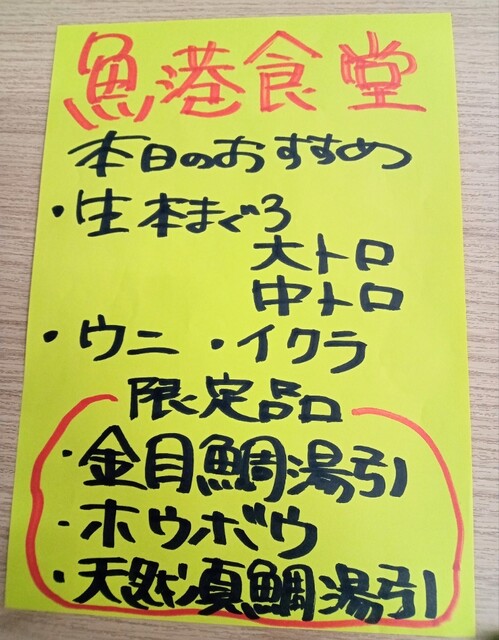 魚港食堂
本日のおすすめ
・生本まぐろ
大トロ
中トロ
・ウニ ・イクラ
限定品
・金目鯛湯引
・ホウボウ
・天然真鯛湯引